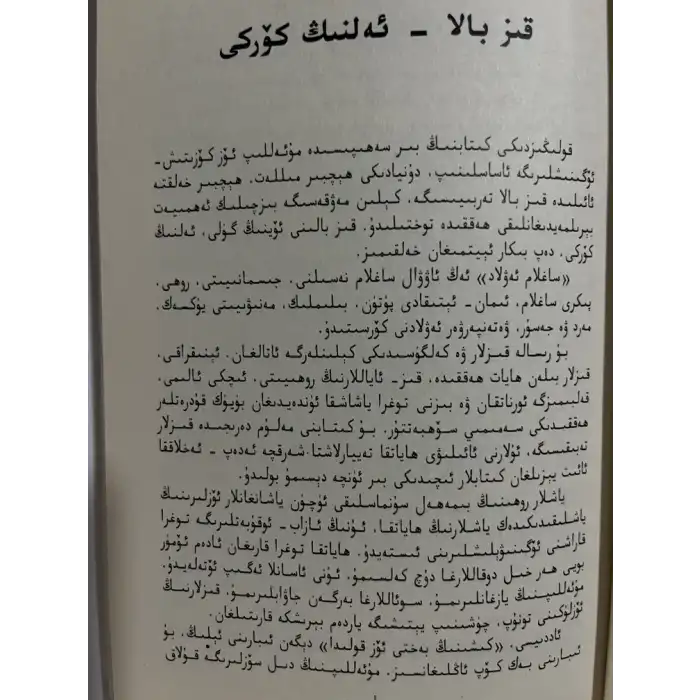 قىز بالا - ئەلنىڭ كۆركى
قولىڭىزدىكى كىتابنىڭ بىر سەھىپىسىدە مۇئەللىپ ئۆز كۆزىتىش-
ئۆگىنىشلىرىگە ئاساسلىنىپ، دۇنيادىكى ھېچبىر مىللەت، ھېچبىر خەلقتە
ئائىلىدە قىز بالا تەربىيىسىگە، كېلىن مەۋقەسىگە بىزچىلىك ئەھمىيەت
بېرىلمەيدىغانلىقى ھەققىدە توختىلىدۇ. قىز بالىنى ئۆينىڭ گۈلى، ئەلنىڭ
كۆركى، دەپ بىكار ئېيتمىغان خەلقىمىز.
«ساغلام ئەۋلاد» ئەڭ ئاۋۋال ساغلام نەسىلنى، جىسمانىيىتى، روھى،
پىكرى ساغلام، ئىمان- ئېتىقادى پۈتۈن، بىلىملىك، مەنىۋىيىتى يۈكسەك،
مەرد ۋە جەسۇر، ۋەتەنپەرۋەر ئەۋلادنى كۆرسىتىدۇ.
بۇ رىسالە قىزلار ۋە كەلگۈسىدىكى كېلىنلەرگە ئاتالغان. ئېنىقراقى،
قىزلار بىلەن ھايات ھەققىدە، قىز- ئاياللارنىڭ روھىيىتى، ئىچكى ئالىمى،
قەلبىمىزگە ئورناتقان ۋە بىزنى توغرا ياشاشقا ئۈندەيدىغان بۈيۈك قۇدرەتلەر
ھەققىدىكى سەمىمىي سۆھبەتتۇر. بۇ كىتابنى مەلۇم دەرىجىدە قىزلار
نەپىقىسىگە، ئۇلارنى ئائىلىۋى ھاياتقا تەييارلاشتا شەرقچە ئەدەپ - ئەخلاققا
ئائىت يېزىلغان كىتابلار ئىچىدىكى بىر ئۈنچە دېسىمۇ بولىدۇ.
ياشلار روھىنىڭ بىمەھەل سۇنماسلىقى ئۈچۈن ياشانغانلار ئۆزلىرىنىڭ
ياشلىقىدىكىدەك ياشلارنىڭ ھاياتقا، ئۇنىڭ ئازاب- ئوقۇبەتلىرىگە توغرا
قاراشنى ئۆگىنىۋېلىشلىرىنى ئىستەيدۇ. ھاياتقا توغرا قارىغان ئادەم ئۆمۈر
بويى ھەر خىل دوقاللارغا دۇچ كەلسىمۇ، ئۇنى ئاسانلا ئەگىپ ئۆتەلەيدۇ.
مۇئەللىپنىڭ يازغانلىرىمۇ، سوئاللارغا بەرگەن جاۋابلىرىمۇ، قىزلارنىڭ
ئۆزلۈكىنى تونۇپ، چۈشىنىپ يېتىشىگە ياردەم بېرىشكە قارىتىلغان.
ئاددىيسى، «كىشىنىڭ بەختى ئۆز قولىدا» دېگەن ئىبارىنى ئېلىڭ، بۇ
ئىبارىنى بەك كۆپ ئاڭلىغانسىز. مۇئەللىپنىڭ دىل سۆزلىرىگە قۇلاق